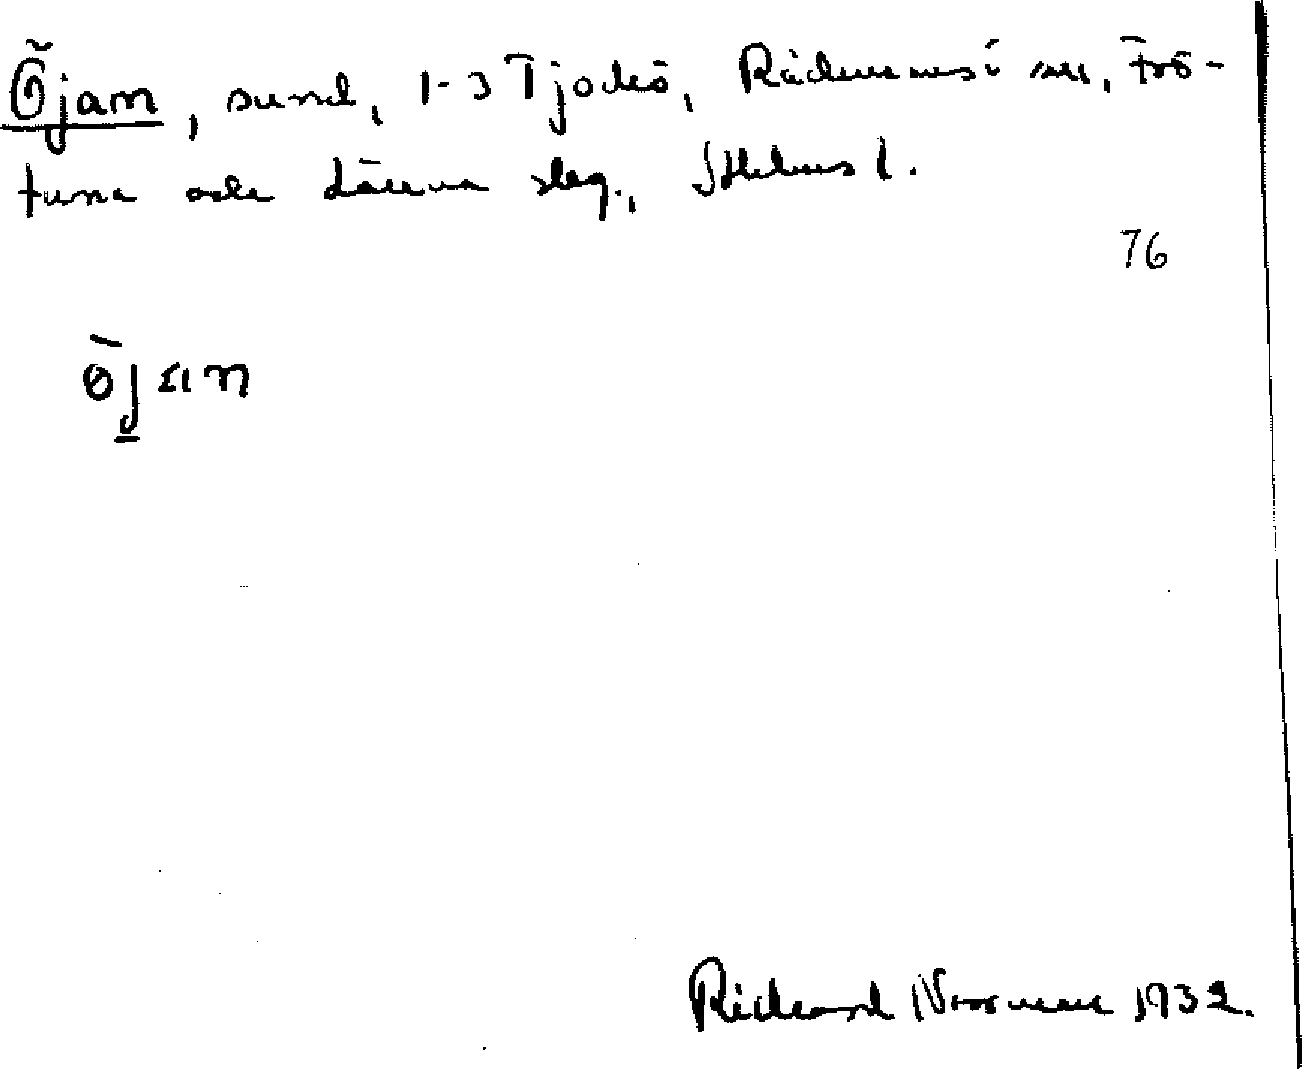 Öjam, sund, 1-3 Tjockö, Rådmansö sn, Frö-
tuna och Länna skg., Sthlms l.
76
öjan
Rickard Norrman 1932.